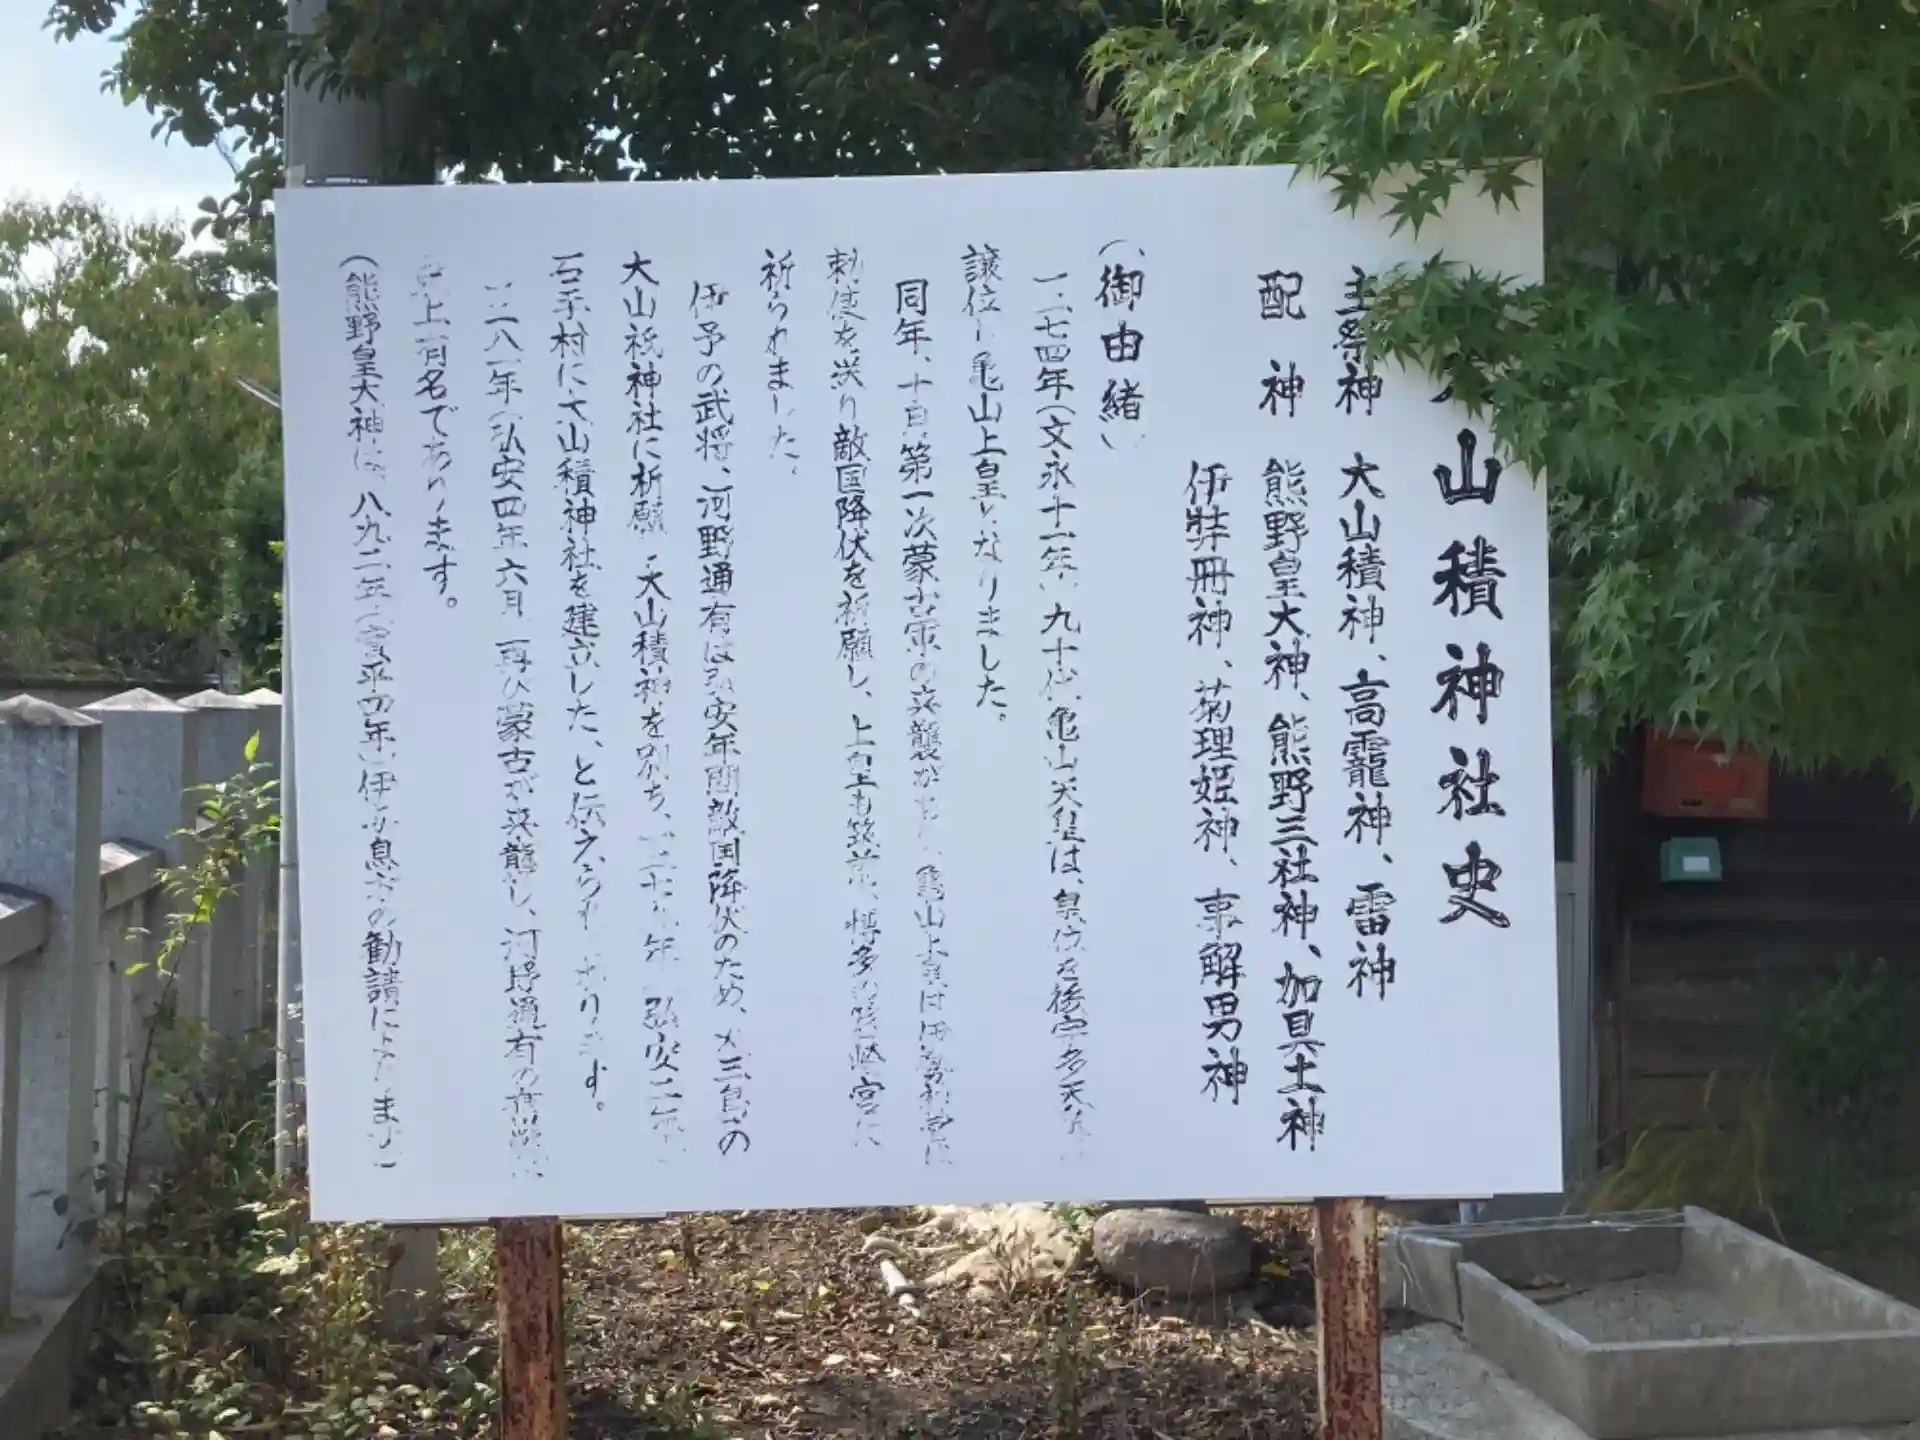 山積神社史
主祭神 大山積神、高龗神、雷神
配神 熊野皇大神、熊野三社神、加具土神
伊弉冊神、菊理姫神、事解男神
(御由緒)
一二七四年(文永十一年)九十代亀山天皇は、皇位を後宇多天皇
譲位し亀山上皇となりました。
同年、十月第一次蒙古軍の来襲が 亀山上皇は伊勢神宮に
勅使を送り敵国降伏を祈願し、上皇も筑前、博多の筥崎宮に
祈られました。
伊予の武将、河野通有は弘安年間敵国降伏のため、大三島の
大山祇神社に祈願 大山積神を別ち、 年 弘安二年
石手村に大山積神社を建立した、と伝えられ おります。
一二八一年(弘安四年)六月 再び蒙古が来襲し、河野通有の奮戦
上有名であります。
(熊野皇大神は、八九二年(寛平四年)伊 の勧請に ます)